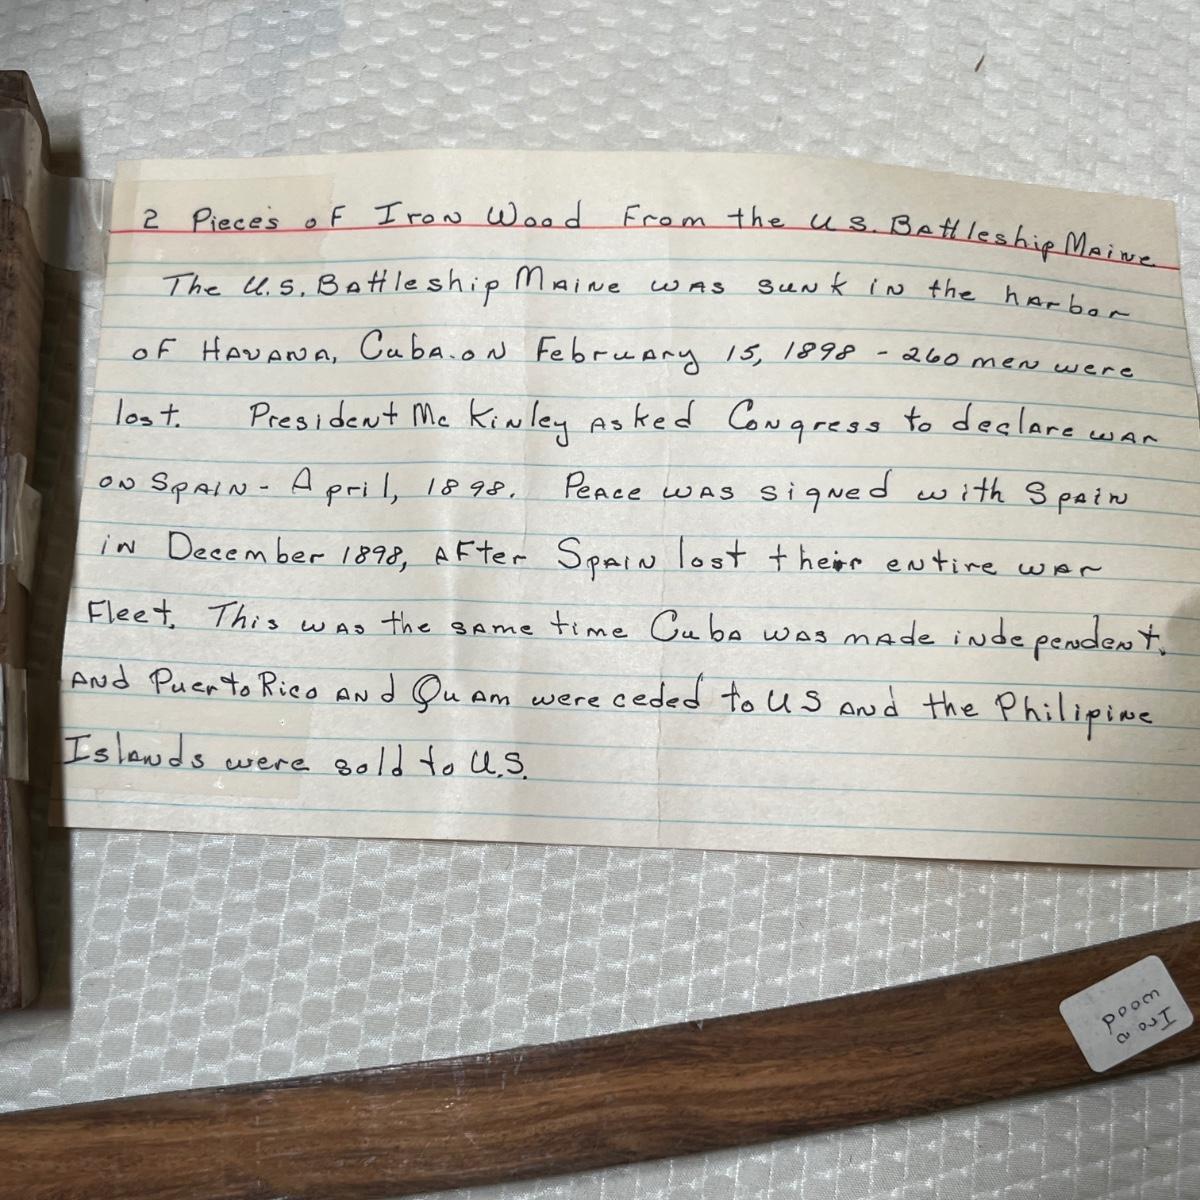 2 Piece's of Iron Wood From the U.S. Battleship Maine
The U.S. Battleship Maine was sunk in the harbor
of Havana, Cuba. on February 15, 1898 - 260 men were
lost. President McKinley asked Congress to declare war
on Spain - April, 1898. Peace was signed with Spain
in December 1898, after Spain lost their entire war
Fleet. This was the same time Cuba was made independent.
and Puerto Rico and Quam were ceded to US and the Philipine
Islands were sold to U.S.
Iron
wood